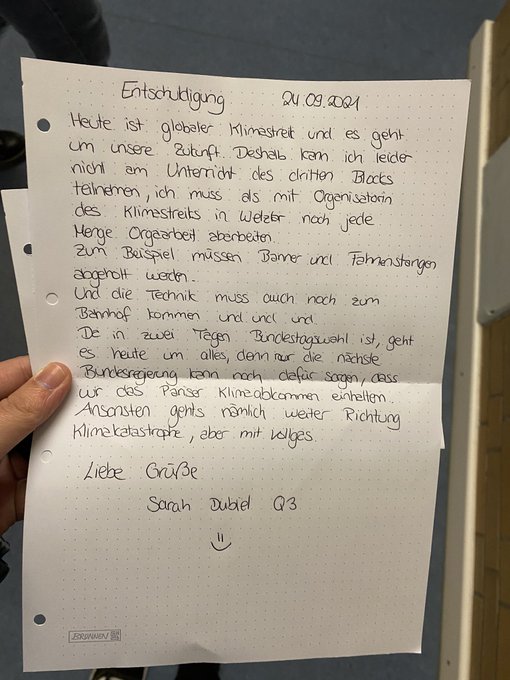 Entschuldigung 24.09.2021
Heute ist globaler Klimastreik und es geht
um unsere Zukunft. Deshalb kann ich leider
nicht am Unterricht des dritten Blocks
teilnemen, ich muss als mit Organisatorin
des Klimastreiks in Wetzlar noch jede
Menge Orgaarbeit abarbeiten.
Zum Beispiel müssen Banner und Fahnenstangen
abgeholt werden.
Und die Technik muss auch noch zum
Bahnhof kommen und und und.
Da in zwei Tagen Bundestagswahl ist, geht
es heute um alles, denn nur die nächste
Bundesregierung kann noch dafür sorgen, dass
wir das Pariser Klimaabkommen einhalten.
Ansonsten gehts nämlich weiter Richtung
Klimakatastrophe, aber mit Vollgas.
Liebe Grüße
Sarah Dubiel Q3
BRUNNEN